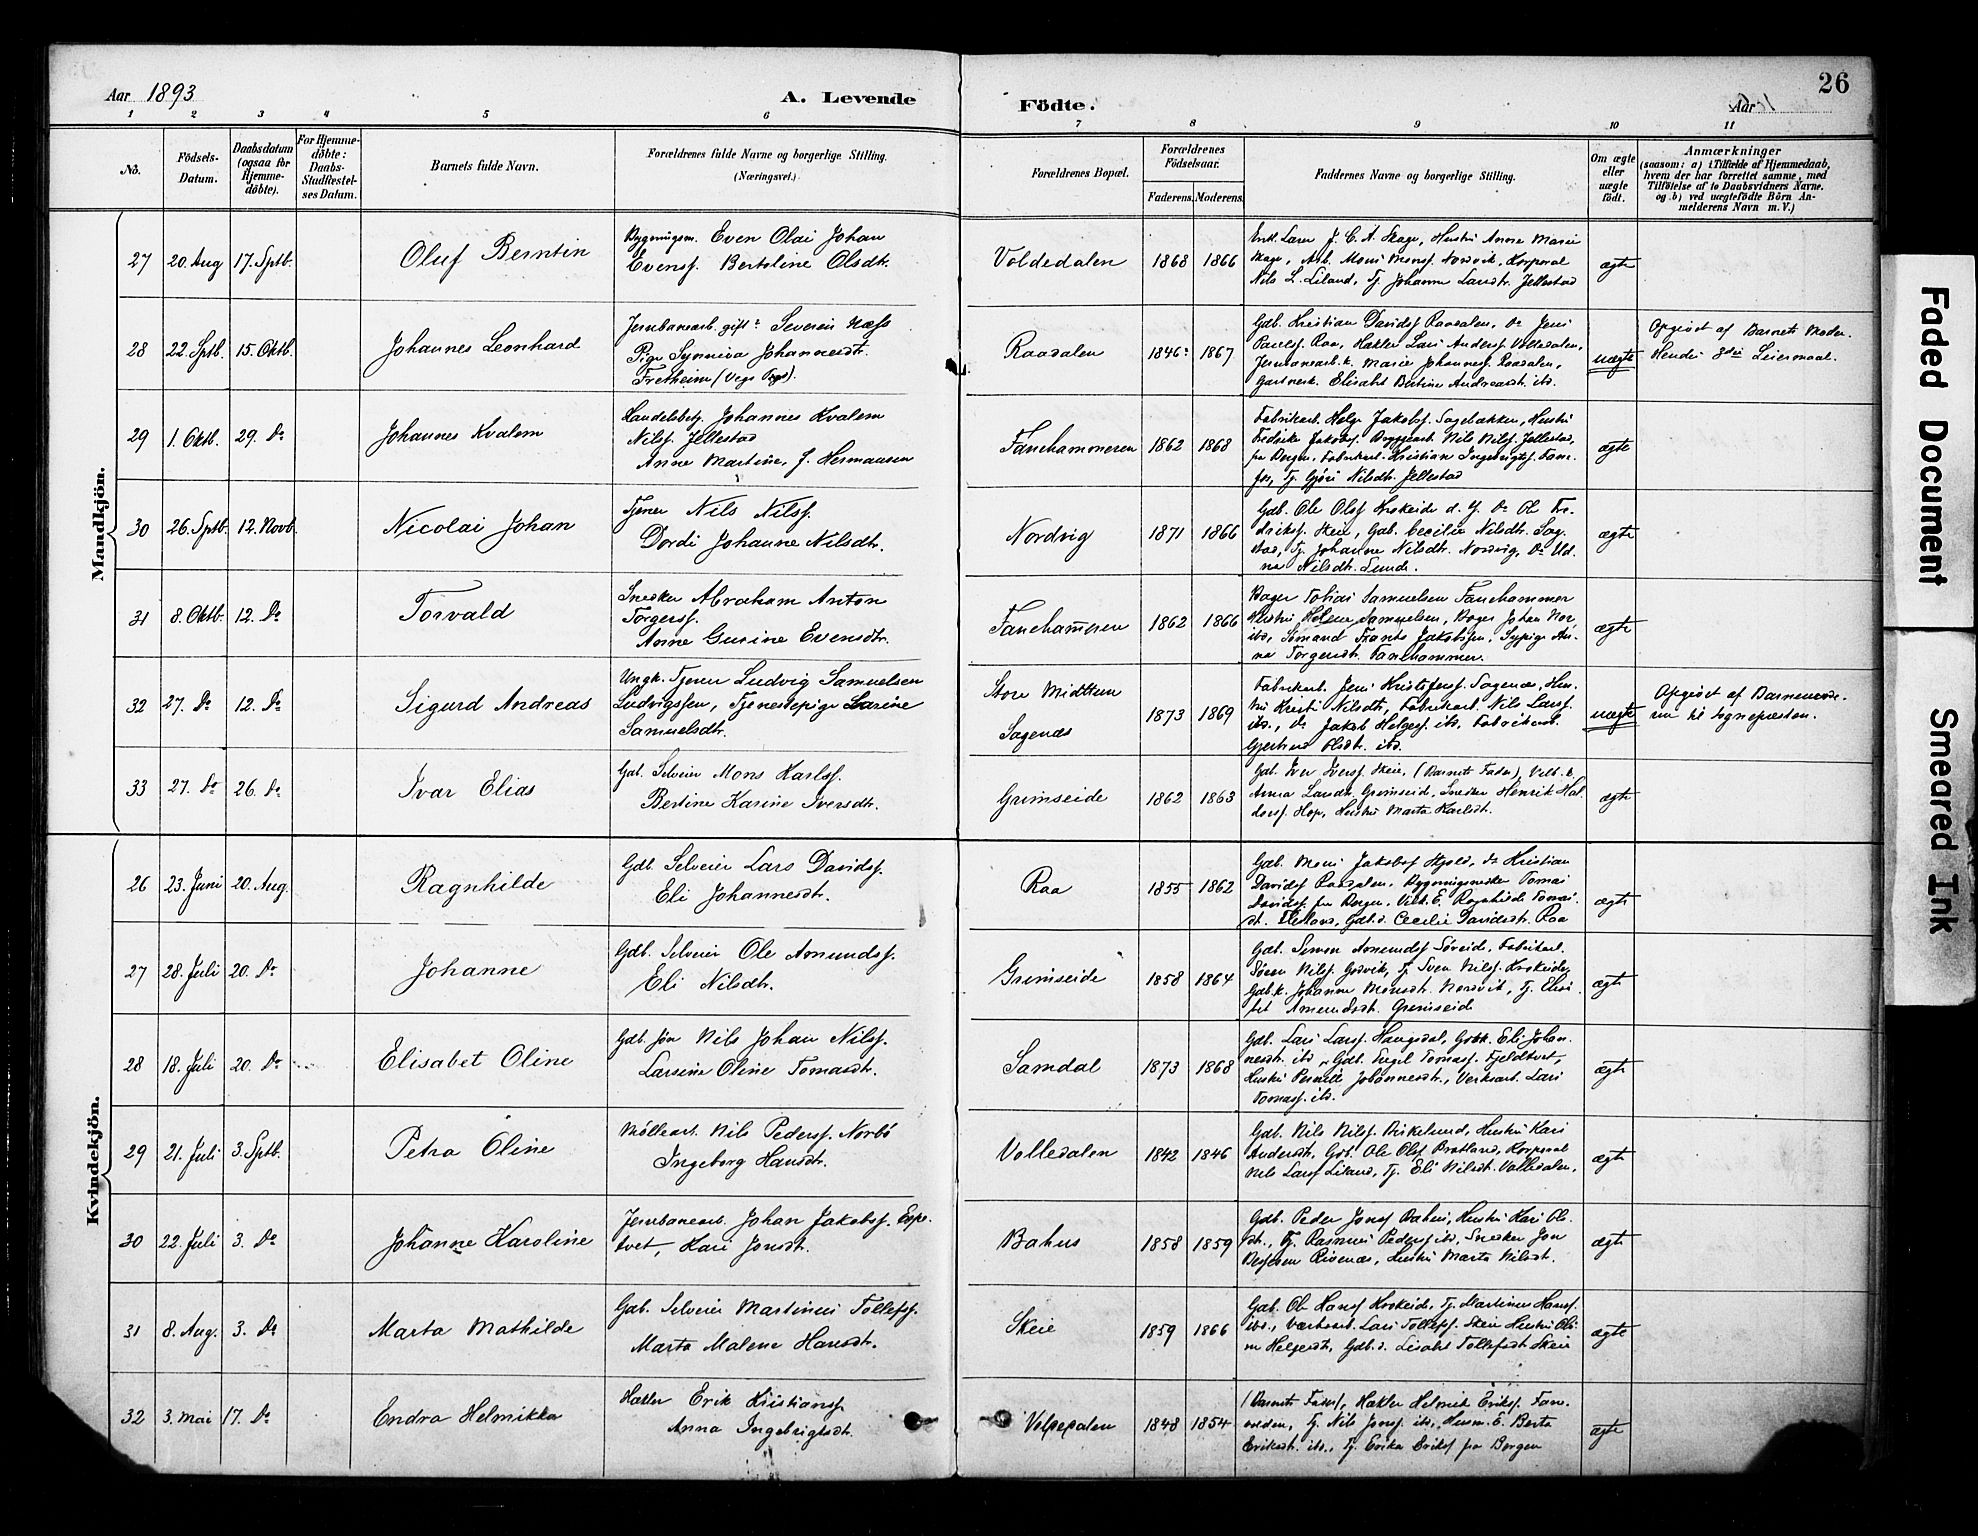 26
Aar 1893
A. Levende
Födte.
Aar
1 2 3 4 5 6 7 8 9 10 11
No.
Födsels-
Datum.
Daabsdatum
(ogsaa for
Hjemme-
döbte).
For Hjemme-
döbte:
Daabs-
Stadfæstel-
ses Datum.
Barnets fulde Navn.
Forældrenes fulde Navne og borgerlige Stilling.
(Næringsvei.)
Forældrenes Bopæl.
Forældrenes
Födselsaar.
Faderens. Moderens.
Faddernes Navne og borgerlige Stilling.
Om ægte
eller
uægte
födt.
Anmærkninger
(saasom: a) i Tilfælde af Hjemmedaab,
hvem der har forrettet samme, med
Tilföielse af to Daabsvidners Navne.
og b) ved uægtefödte Börn An-
melderens Navn m. V.)
Mandkjön.
27 20. Aug 17. Sptb. Oluf Berntin
Bygningsm. Even Olai Johan
Evensf. Bertoline Olsdtr.
Voldedalen 1868 1866
Enkl. Lærer J. C. A. Skage, Hustru Anna Marie
Skage, Arb. Mons Monsf. Nordvik, Korporal
Nils L. Liland, Tj. Johanne Larsdtr. Jellestad
ægte
28 22. Sptb. 15. Oktb. Johannes Leonhard
Jernbanearb. gift Severin Næss
Pige Synneva Johannesdtr.
Fretheim
Raadalen 1846 1867
Gdb. Kristian Davidsf. Raadalen, Do Jens
Paulsf. Raa, Hakler Lars Andersf. Volledalen,
Jernbanearb.k. Marie Johannesf. Raadalen,
Gartnerk. Elisabet Bertine Andreasdtr. ibd.
uægte
Opgivet af Barnets Moder.
Hendes 3die Leiermaal.
29 1. Oktb. 29. Do Johannes Kvalem
Handelsbetj. Johannes Kvalem
Nilsf. Jellestad
Anne Martine, f. Hermansen
Fanehammeren 1862 1868
Fabrikarb. Helge Jakobsf. Sagebakken, Hustru
Fredrikke Jakobsf. Byggearb. Nils Nilsf. Jellestad,
fra Bergen, Fabrikarb. Kristian Ingebrigtsf. Fane-
fos, Tj. Gjöri Nilsdtr. Jellestad
ægte
30 26. Sptb. 12. Novb. Nicolai Johan
Tjener Nils Nilsf.
Dordi Johanne Nilsdtr.
Nordvig 1871 1866
Gdb. Ole Olsf. Krokeide d. y. Do Ole Fre-
driksf. Skeie, Gdb. Cecilie Nilsdtr. Sag-
stad, Tj. Johanne Nilsdtr. Nordvig, Do
Nilsdtr. Lunde.
ægte
31 8. Oktb. 12. Do Torvald
Snedker Abraham Anton
Torgersf.
Anne Gurine Evensdtr.
Fanehammeren 1862 1866
Bager Tobias Samuelsen Fanehammer
Hustru Helene Samuelsen, Bager Johan
ibd., Sömand Frants Jakobsen, Sypige An-
na Torgersdtr. Fanehammer.
ægte
32 27. Do 12. Do Sigurd Andreas
Ungk. Tjener Ludvig Samuelsen
Ludvigssen, Tjenestepige Larine
Samuelsdtr.
Store Midttun
Sagenæs
1873 1869
Fabrikarb. Jens Kristofersf. Sagenæs, Hus-
tru Kristi Nilsdtr., Fabrikarb. Nils Larsf.
ibd., Do Jakob Helgesf. ibd., Fabrikarb.
Gjertrud Olsdtr. ibd.
uægte
Opgivet af Barnemode-
ren til Sognepresten.
33 27. Do 26. Do Ivar Elias
Gdb. Selveier Mons Karlsf.
Bertine Karine Iversdtr.
Grimseide 1862 1863
Gdb. Iver Iversf. Skeie, (Barnets Fader),
Anna Larsdtr. Grimseid, Snedker Henrik Hal-
dorsf. Hop, Hustru Marta Karlsdtr.
ægte
Kvindekjön.
26 23. Juni 20. Aug. Ragnhilde
Gdb. Selveier Lars Davidsf.
Eli Johannesdtr.
Raa 1855 1862
Gdb. Mons Jakobsf. Hjold, Do Kristian
Davidsf. Raadalen, Bygningssnedker Tomas
Davidsf. fra Bergen, Ragnhilde Tomas-
dtr. Gdb.d. Cecilie Davidsdtr. Raa
ægte
27 28. Juli 20. Do Johanne
Gdb. Selveier Ole Amundsf.
Eli Nilsdtr.
Grimseide 1858 1864
Gdb. Simon Amundsf. Söreide, Fabrikarb.
Sören Nilsf. Godvik, Tj. Sven Nilsf. Krokeide,
Gdb.k. Johanne Monsdtr. Nordvik, Tj. Elisa-
bet Amundsdtr. Grimseide
ægte
28 18. Juli 20. Do Elisabet Oline
Gdb. Sön Nils Johan Nilsf.
Larsine Oline Tomasdtr.
Samdal 1873 1868
Gdb. Lars Larsf. Haugsdal, Gdbk. Eli Johan-
nesdtr. ibd., Gdb. Engel Tomasf. Fjeldtvet,
Hustru Pernille Johannesdtr., Verksarb. Lars
Tomasf. ibd.
ægte
29 21. Juli 3. Sptb. Petra Oline
Möllearb. Nils Pedersf. Norbö
Ingeborg Hansdtr.
Volledalen 1842 1846
Gdb. Nils Nilsf. Birkelund, Hustru Kari
Andersdtr., Gdb. Ole Olsf. Bratland, Korporal
Nils Larsf. Liland, Tj. Eli Nilsdtr. Volledalen.
ægte
30 22. Juli 3. Do Johanne Karoline
Jernbanearb. Johan Jakobsf. Espe-
tvet, Kari Jonsdtr.
Bahus 1858 1859
Gdb. Peder Jonsf. Bahus, Hustru Kari Ols-
dtr., Tj. Rasmus Pedersf. ibd., Snedker Jon
Rivenæs, Hustru Marta Nilsdtr.
ægte
31 8. Aug. 3. Do Marta Mathilde
Gdb. Selveier Martinus Tollefsf.
Marta Malene Hansdtr.
Skeie 1859 1866
Gdb. Ole Hansf. Krokeide, Tj. Martinus Hansf.
ibd., Værksarb. Lars Tollefsf. Skeie Hustru Oli-
ne Helgesdtr., Gdb.d. Lisabet Tollefsdtr. Skeie
ægte
32 3. Mai 17. Do Endra Helmikka
Hakler Erik Kristiansf.
Anna Ingebrigtsdtr.
Volledalen 1848 1854
(Barnets Fader), Hakler Helmik Eriksf. Fan-
Tj. Nils Jonsf. ibd., Husm. E. Berta
Eriksdtr. ibd., Tj. Erika Eriksf. fra Bergen
ægte
Faded Document
Smeared Ink